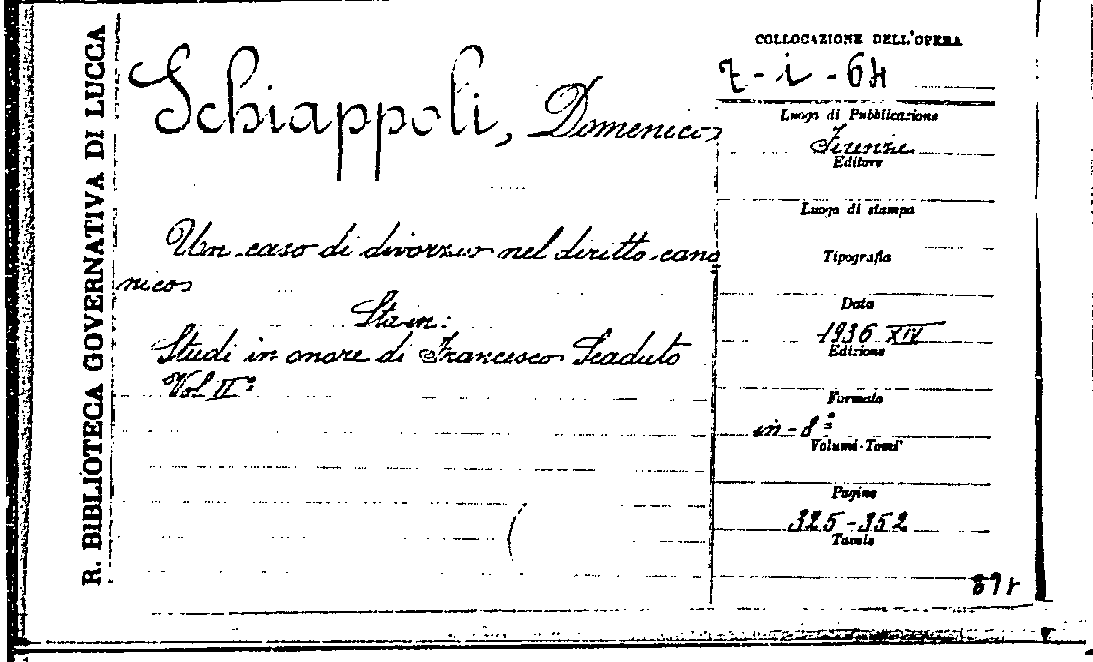 R. BIBLIOTECA GOVERNATIVA DI LUCCA
Schiappoli, Domenico
Un caso di divorzio nel diritto cano
nico
Sta in:
Studi in onore di Francesco Scaduto
Vol II°
COLLOCAZIONE DELL'OPERA
Luogo di Pubblicazione
Firenze
Editore
Luogo di stampa
Tipografia
Data
1936 XIV
Edizione
Formato
in-8°
Volumi-Tomi
Pagine
325-352
Tavole